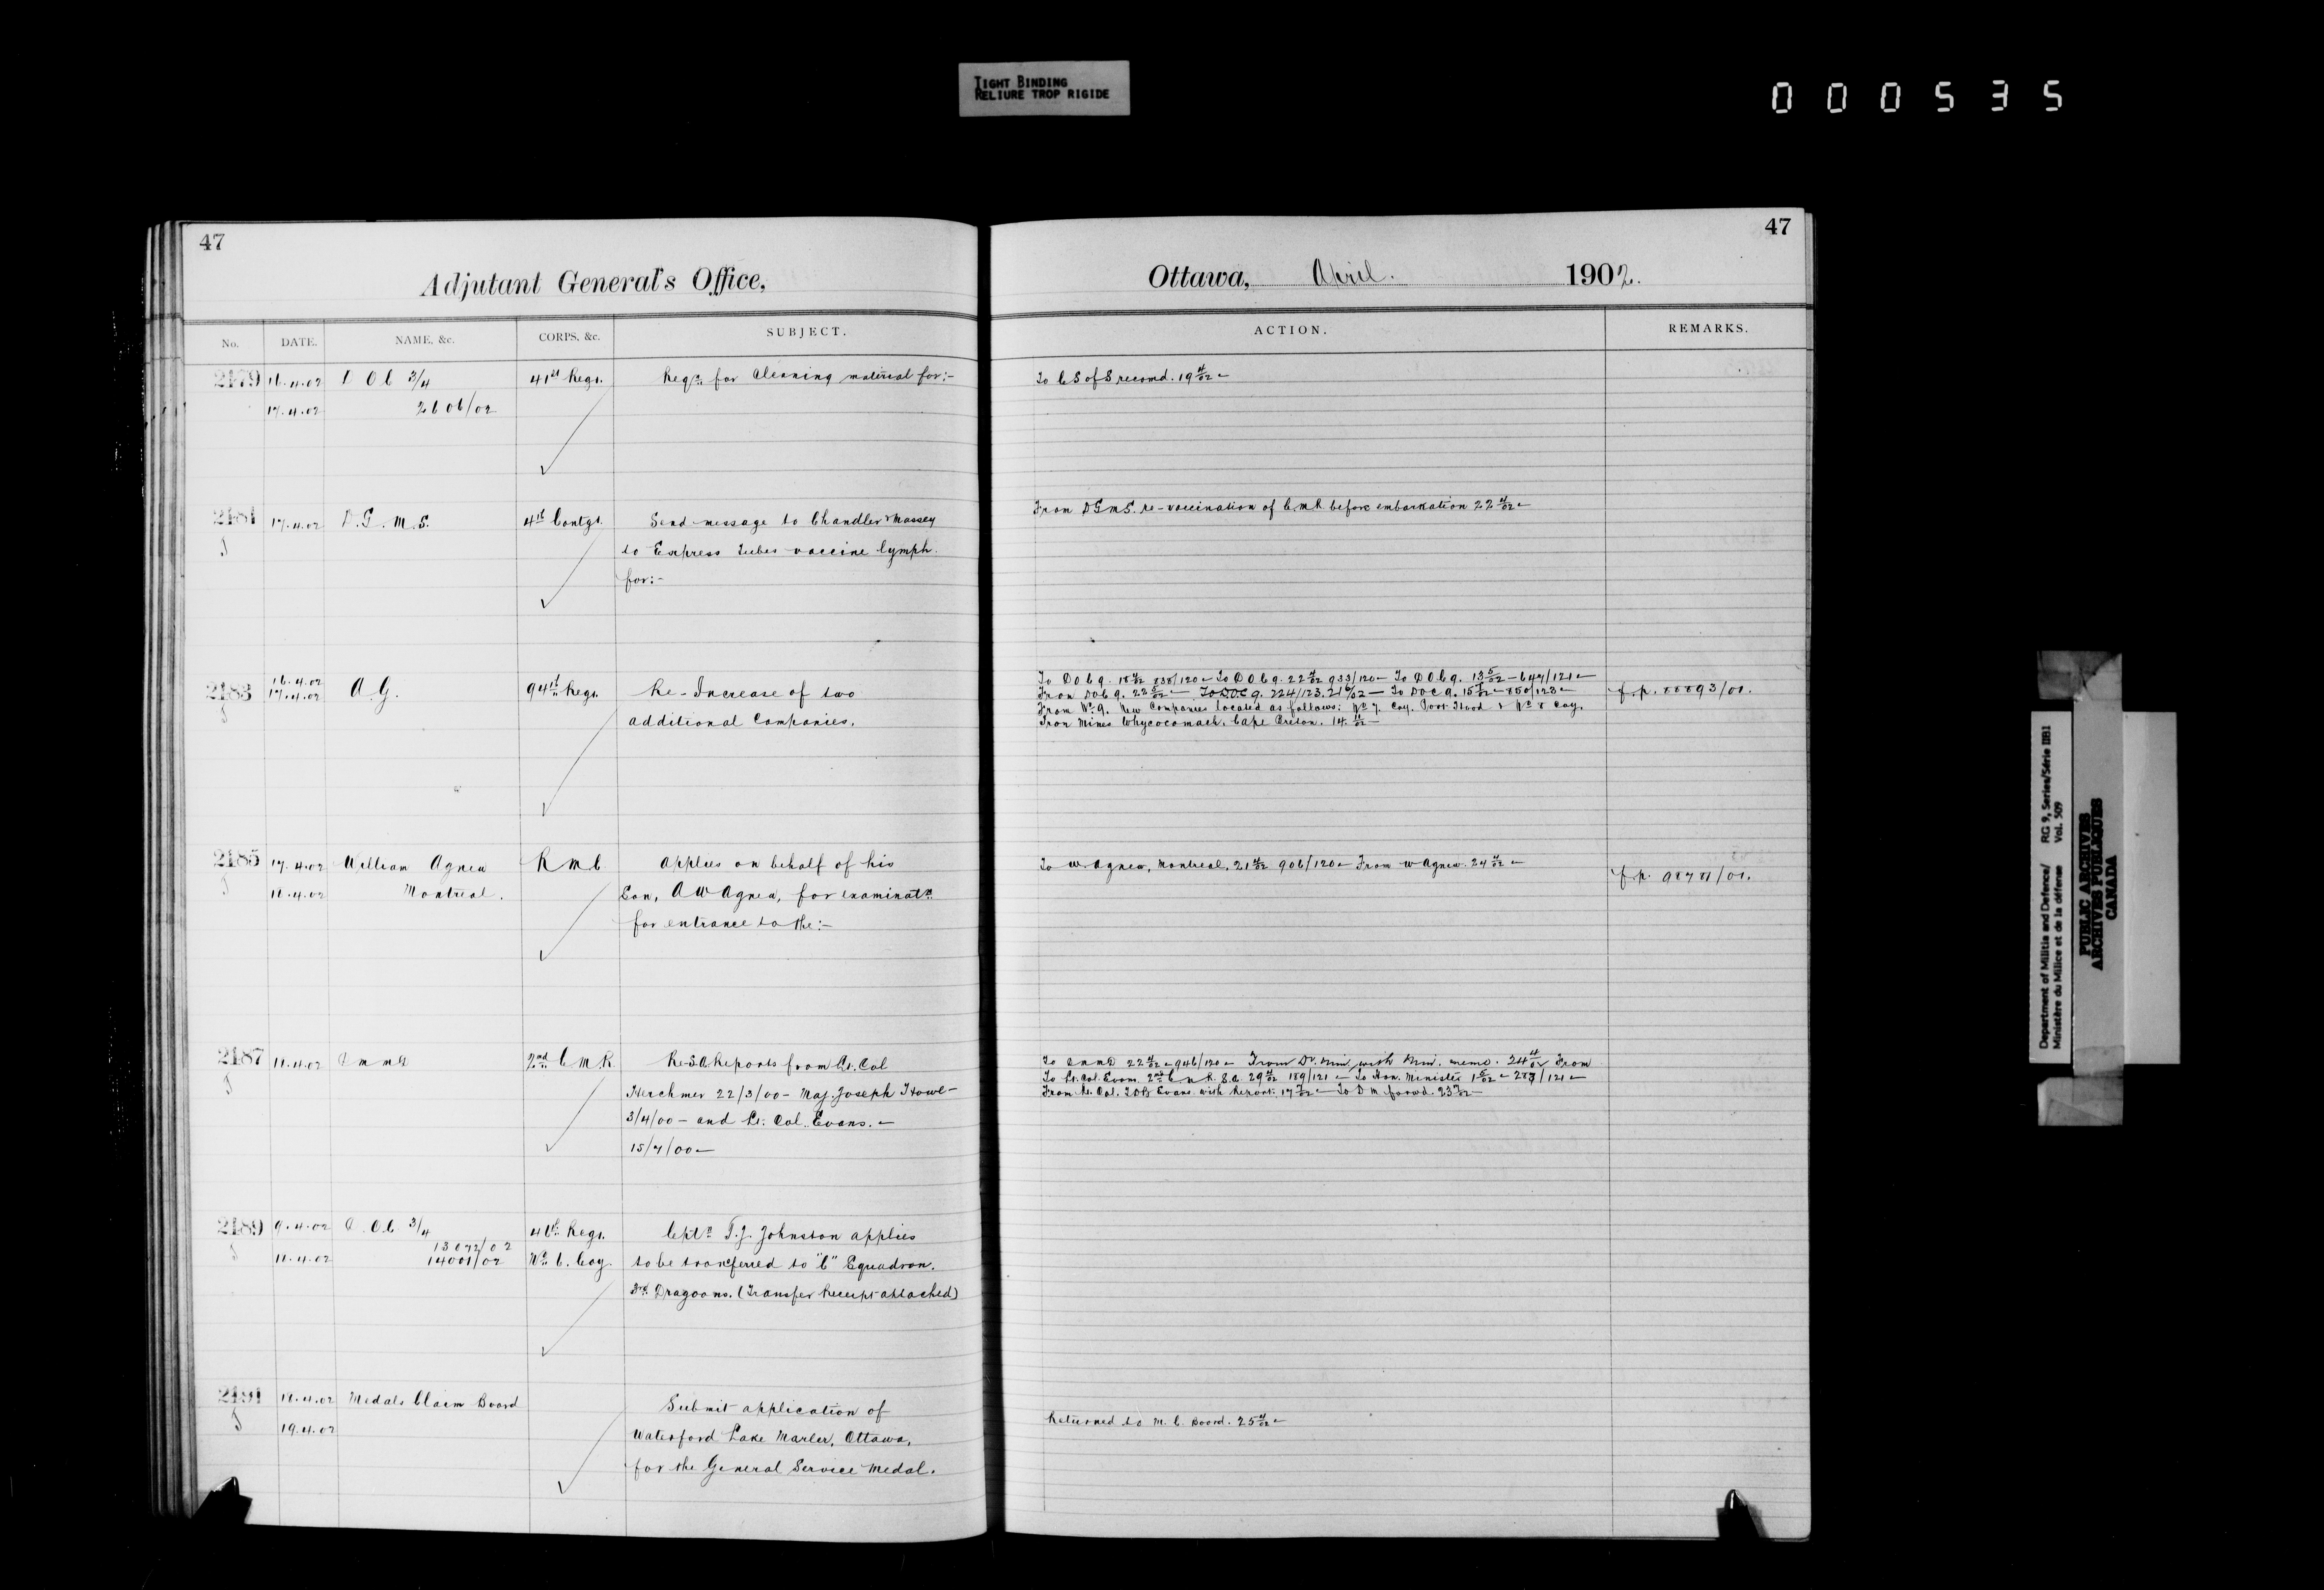 TIGHT BINDING
RELIURE TROP RIGIDE
000535
47
Adjutant General's Office,
No. DATE. NAME, &c. CORPS, &c. SUBJECT.
2179 16.4.02 D O C 3/4 41st Regt. Reqn. for Cleaning material for:-
17.4.02 2606/02
2181 17.4.02 D.G.M.S. 4th Contgt. Send message to Chandler & Massey
to Express Tubes vaccine lymph
for:-
2183 16.4.02
17.4.02 A.G. 94th Regt. Re-Increase of two
additional Companies.
2185 17.4.02 William Agnew R M C Applies on behalf of his
18.4.02 Montreal. Son, A W Agnew, for examinatn
for entrance to the:-
2187 18.4.02 2nd C M R Re S A Reports from Lt. Col
Herchmer 22/3/00 - Maj. Joseph Howe -
3/4/00 - and Lt. Col. Evans. -
15/7/00 -
2189 9.4.02 D.O.C 3/4 41st Regt. Captn T.J. Johnston applies
13072/02
18.4.02 14001/02 No. 6. Coy. to be transferred to "C" Squadron.
3rd Dragoons. (Transfer Receipt attached)
2191 18.4.02 Medals Claim Board Submit application of
19.4.02 Waterford Lake Marler, Ottawa,
for the General Service Medal.
47
Ottawa, April. 1902.
ACTION. REMARKS.
To C S of S recomd. 19 4/02 -
From DGMS. re-vaccination of C.M.R. before embarkation 22 4/02 -
To D O C 9. 18 4/02 838/120 - To D O C 9. 22 4/02 933/120 - To D.O.C 9. 13 5/02 - 647/121 -
From DOC 9. 22 5/02 - To DOC 9. 224/123. 21 6/02 - To DOC 9. 15 7/02 - 850/123 -
From No. 9. New Companies located as follows: No 7. Coy. Port Hood & No 8 Coy.
Iron Mines Whycocomagh. Cape Breton. 14. 11/02 -
f.p. 88893/01.
To W. Agnew, Montreal. 21 4/02 906/120 - From W Agnew. 24 4/02 -
f.p. 98788/01.
To 22 4/02 - 946/120 - From Dr. Min, with Min. memo. 24 4/02 From
To Lt. Col. Evans. 2nd C M R. S.A. 29 4/02 189/121 - To Hon. Minister 1 5/02 - 287/121 -
From Lt. Col. T.D.B Evans with Report. 17 7/02 - To D M forwd. 23 7/02 -
Returned to M. C. Board. 25 4/02 -
Department of Militia and Defence/ RG 9, Series/Série IIB1
Ministère du Milice et de la défense Vol. 509
PUBLIC ARCHIVES
ARCHIVES PUBLIQUES
CANADA